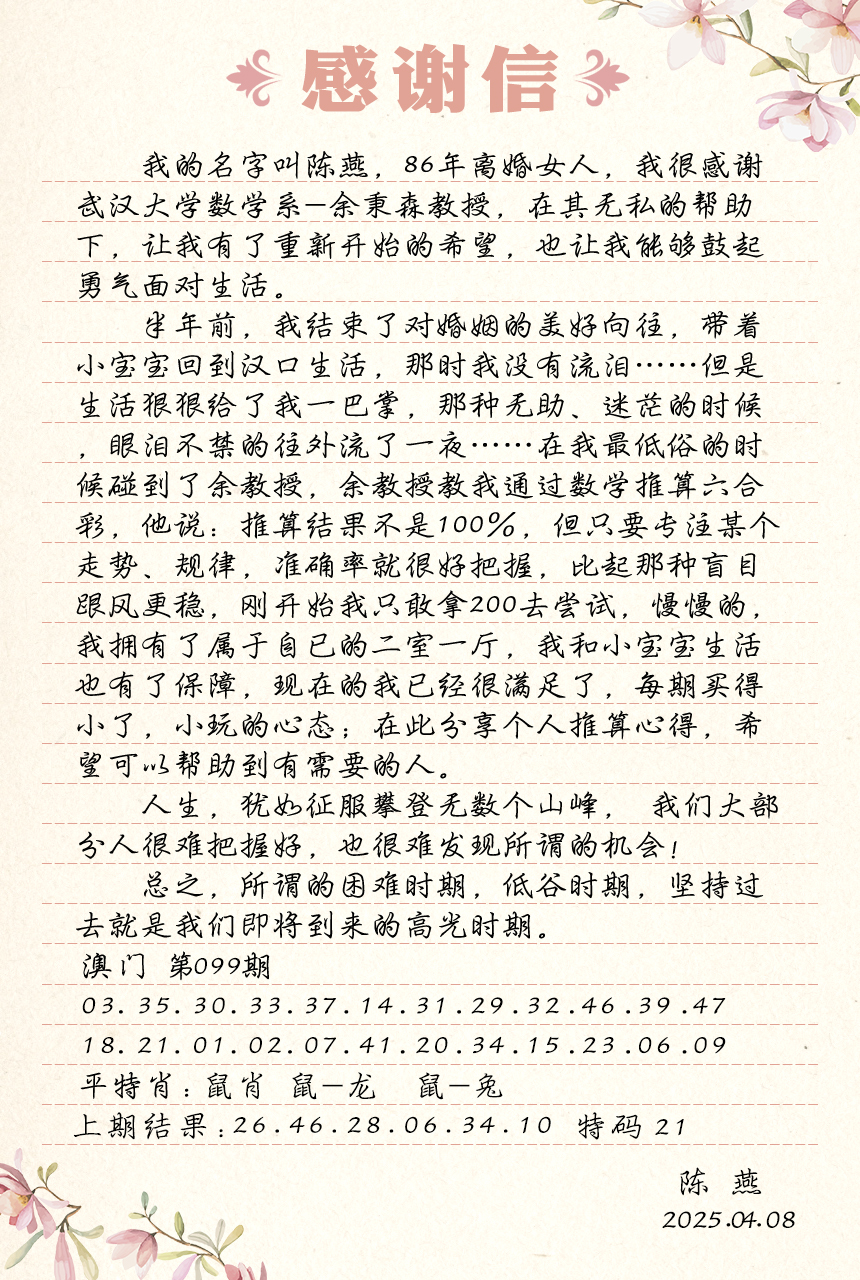 感谢信
我的名字叫陈燕，86年离婚女人，我很感谢
武汉大学数学系—余秉森教授，在其无私的帮助
下，让我有了重新开始的希望，也让我能够鼓起
勇气面对生活。
半年前，我结束了对婚姻的美好向往，带着
小宝宝回到汉口生活，那时我没有流泪……但是
生活狠狠给了我一巴掌，那种无助、迷茫的时候
，眼泪不禁的往外流了一夜……在我最低俗的时
候碰到了余教授，余教授教我通过数学推算六合
彩，他说：推算结果不是100%，但只要专注某个
走势、规律，准确率就很好把握，比起那种盲目
跟风更稳，刚开始我只敢拿200去尝试，慢慢的，
我拥有了属于自已的二室一厅，我和小宝宝生活
也有了保障，现在的我已经很满足了，每期买得
小了，小玩的心态；在此分享个人推算心得，希
望可以帮助到有需要的人。
人生，犹如征服攀登无数个山峰， 我们大部
分人很难把握好，也很难发现所谓的机会！
总之，所谓的困难时期，低谷时期，坚持过
去就是我们即将到来的高光时期。
澳门 第099期
03.35.30.33.37.14.31.29.32.46.39.47
18.21.01.02.07.41.20.34.15.23.06.09
平特肖：鼠肖 鼠—龙 鼠—兔
上期结果：26.46.28.06.34.10 特码 21
陈 燕
2025.04.08